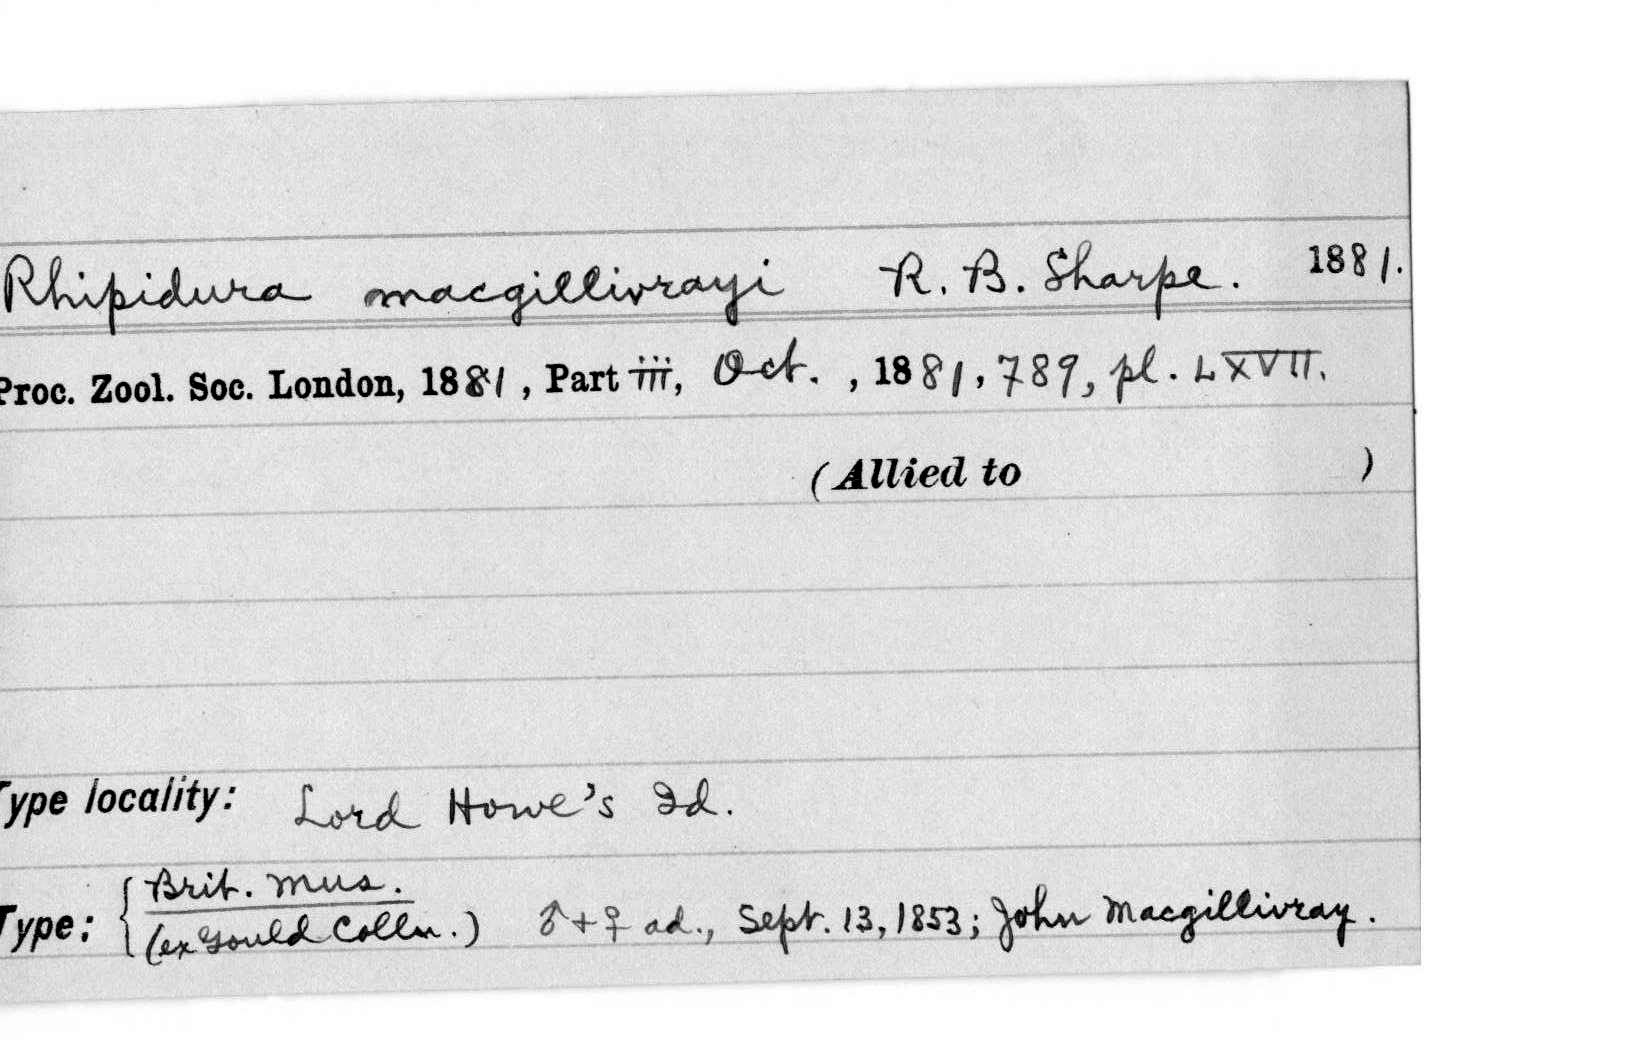 Rhipidura macgillivrayi R. B. Sharpe. 1881.
Proc. Zool. Soc. London, 1881, Part iii, Oct. , 1881, 789, pl. LXVII.
(Allied to )
Type locality: Lord Howe's Id.
Type: { Brit. Mus.
(ex Gould Colln.) ♂ + ♀ ad., Sept. 13, 1853; John Macgillivray.